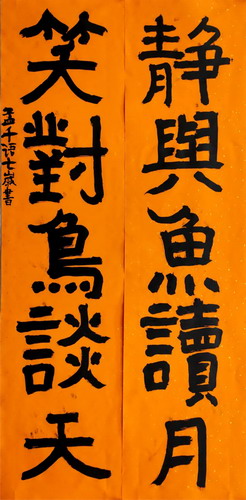 静與魚讀月
笑對鳥談天
孟千語七歲書